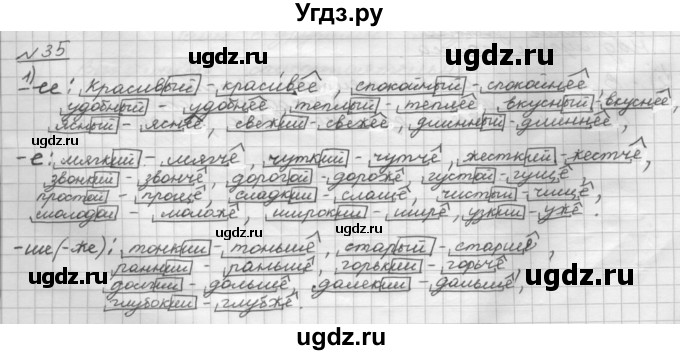 Угдз.ру
№35
ugdz.ru ugdz.ru
1) -ее: красивый - красивее, спокойный - спокойнее
удобный - удобнее, теплый - теплее, вкусный, вкуснее,
ясный - яснее, свежий - свежее, длинный - длиннее,
ugdz.ru ugdz.ru
-е: мягкий - мягче, чуткий - чутче, жесткий - жестче,
звонкий - звонче, дорогой - дороже, густой - гуще,
простой - проще, сладкий - слаще, чистый - чище,
молодой - моложе, широкий - шире, узкий - уже.
ugdz.ru
-ше (-же): тонкий - тоньше, старый - старше,
ранний - раньше, горький - горче
долгий - дольше, далекий - дальше,
глубокий - глубже.
ugdz.ru ugdz.ru
ugdz.ru ugdz.ru